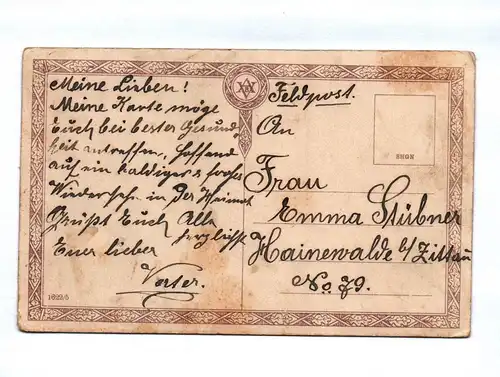 Meine Lieben!
Meine Karte möge
Euch bei bester Gesund-
heit antreffen, hoffend
auf ein baldiges & frohes
Wiedersehn in der Heimat
Grüßt Euch Alle
herzlichst
Euer lieber
Vater.
1622/5
Feldpost.
An
Frau
Emma Stübner
Hainewalde b/Zittau
No. 79.